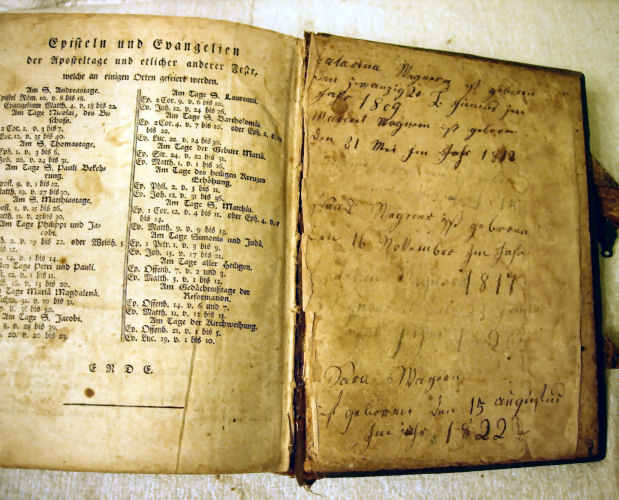 Episteln und Evangelien
der Aposteltage und etlicher anderer Feste,
welche an einigen Orten gefeiert werden.
Am S. Andreastage.
Epistel Röm. 10. v. 8 bis 18.
Evangelium Matth. 4. v. 18 bis 22.
Am Tage Nicolai, des Bi-
schofs.
2 Cor. 1. v. 3 bis 7.
Luc. 12. v. 35 bis 40.
Am S. Thomastage.
Eph. 1. v. 3 bis 6.
Joh. 20. v. 24 bis 31.
Am Tage S. Pauli Bekeh-
rung.
Apost. 9. v. 1 bis 22.
Matth. 19. v. 27 bis 30.
Am S. Matthiastage.
Apost. 1. v. 15 bis 26.
Matth. 11. v. 25 bis 30.
Am Tage Philippi und Ja-
cobi.
v. 19 bis 22. oder Weish. 5
v. 1 bis 14.
Am Tage Petri und Pauli.
12. v. 1 bis 11.
Tage Mariä Magdalenä.
Am Tage S. Jacobi.
8. v. 28 bis 39.
20. v. 20 bis 23.
Am Tage S. Laurentii.
Ep. 2 Cor. 9. v. 6 bis 10.
Ev. Joh. 12. v. 24 bis 26.
Am Tage S. Bartholomäi
Ep. 2 Cor. 4. v. 7 bis 10. oder Eph. 2. v. 19
bis 22.
Ev. Luc. 22. v. 24 bis 30.
Am Tage der Geburt Mariä.
Ep. Sir. 24. v. 22 bis 31.
Ev. Matth. 1. v. 1 bis 16.
Am Tage des heiligen Kreuzes
Erhöhung.
Ep. Phil. 2. v. 5 bis 11.
Ev. Joh. 12. v. 31 bis 36.
Am Tage S. Matthäi.
Ep. 1 Cor. 12. v. 4 bis 11. oder Eph. 4. v. 7
bis 14.
Ev. Matth. 9. v. 9 bis 13.
Am Tage Simonis und Judä.
Ep. 1 Petr. 1. v. 3 bis 9.
Ev. Joh. 15. v. 17 bis 21.
Am Tage aller Heiligen.
Ep. Offenb. 7. v. 2 und 3.
Ev. Matth. 5. v. 1 bis 12.
Am Gedächtnißtage der
Reformation.
Ep. Offenb. 14. v. 6 und 7.
Ev. Matth. 11. v. 12 bis 15.
Am Tage der Kirchweihung.
Ep. Offenb. 21. v. 1 bis 5.
Ev. Luc. 19. v. 1 bis 10.
ENDE.
Catarina Wagnern ist geboren
den zwanzigste
Jahr 1809
Wagnern ist geboren
den 21 Mei im Jahr 1812
Wagner ist geboren
den 16 November im Jahr
1817
Sara Wagnern
ist geboren den 15 augustus
im 1822